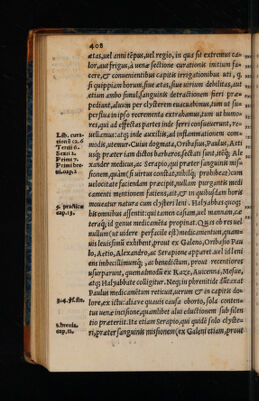 408
ætas, uel anni tẽpus, uel regio, in quo sit extremus ca-
lor, aut frigus, à uenæ sectione curationis initium fa-
cere, & conuenientibus capitis irrigationibus uti,
si quippiam morbum, siue ætas, siue uirium debilitas, aut
etiam ambo simul, sanguinis detractionem fieri præ-
pediant, aluum per clysterem euacuabimus, tum ut su-
perflua in ipso recrementa extrahamus, tum ut humo-
res, qui ad affectas partes inde ferri consueuerunt, re-
uellamus: atq; inde auxiliis, ad inflammationem com-
modis, utemur. Cuius dogmatis, Oribasius, Paulus, Aëti
usq; præter iam dictos barbaros, sectatores
xander medicus, ac Serapio, qui præter sanguinis mis-
sionem, quàm (si uirtus constat, nihilq; prohibeat) cum
uelocitate faciendam præcipit, nullam purgantis medi
camenti mentionem facientes, ait, & in quibusdam horis
moueatur natura cum clysteri leni. Halyabbas quoq;
his omnibus assentit: qui tamen casiam, uel mannam, cæ
teraq; id genus medicamina propinat. Quare ob res uel
nullum (ut uidere perfacile est) medicamentum, quam-
uis leuissimũ exhibent, prout ex Galeno, Oribasio Pau
lo, Aetio, Alexandro, ac Serapione apparet: uel id leni
ens imbecillimumq;, ac benedictum, prout recentiores
usurparunt, quemadmodũ ex Raze, Auicenna, Mesue,
atq; Halyabbate colligitur. Neq; in phrenitide diutaxat
Paulus medicamẽtum reticuit, uerum & in capitis do-
lore, ex ictu: aliaue quauis causa oborto, sola conten-
tus uenæ incisione, quamlibet alui eductionem sub silen
tio præteriit. Ita etiam Serapio, qui quidẽ solo clyste-
ri, præter sanguinis missionem (ex Galeni etiam, prout
Lib. cura-
tionũ ca. 6
Tertii 6.
Primi 7.
Primi bre-
uii. cap. 2
5. practicæ
cap. 13.
3. 4. fol. fin.
cap. 11.